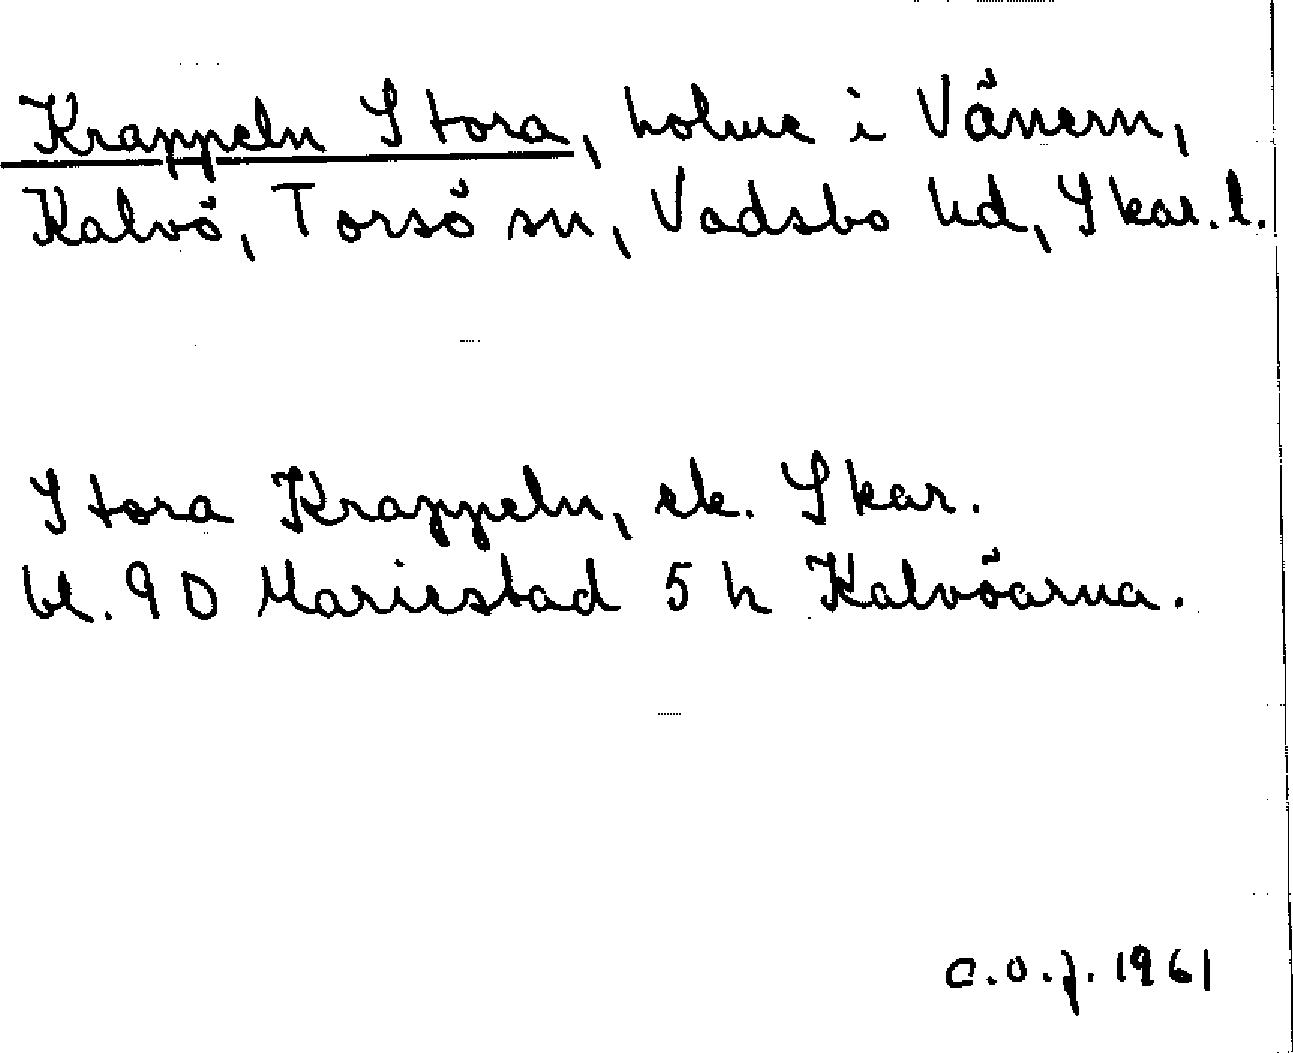 Krappeln Stora, holme i Vänern,
Kalvö, Torsö sn, Vadsbo hd, Skar. l.
Stora Krappeln, ek. Skar.
bl. 90 Mariestad 5 h Kalvöarna.
C.O.J. 1961